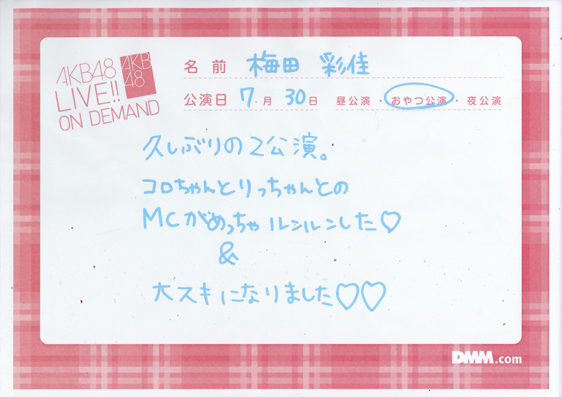 AKB48
LIVE!!
ON DEMAND
AKB
48
名前 梅田 彩佳
公演日 7月 30日 昼公演・おやつ公演・夜公演
久しぶりの2公演。
コロちゃんとりっちゃんとの
MCがめっちゃルンルンした♡
&
大スキになりました♡♡
DMM.com